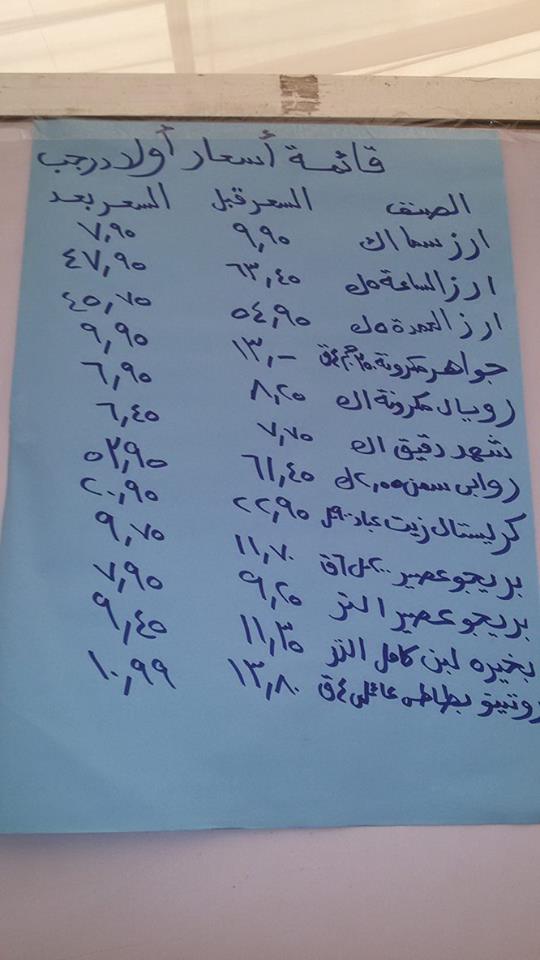 قائمة أسعار أولاد رجب
الصنف السعر قبل السعر بعد
ارز سما ١ك ٩,٩٠ ٧,٩٠
ارز الساعة ٥ك ٦٣,٤٥ ٤٧,٩٥
ارز العمدة ٥ك ٥٤,٩٥ ٤٥,٧٥
جواهر مكرونة ١٣,-  ٩,٩٥
رويال مكرونة ١ك ٨,٢٥ ٦,٩٥
شهد دقيق ١ك ٧,٧٥ ٦,٤٥
روابى سمن ك ٦١,٤٥ ٥٢,٩٥
كريستال زيت عباد ٩٠٠مل ٢٢,٩٥ ٢٠,٩٥
بريجو عصير ٢٠٠مل ٦ق ١١,٧٠ ٩,٧٥
بريجو عصير ١لتر ٩,٢٥ ٧,٩٥
بخيره لبن كامل ١لتر ١١,٣٥ ٩,٤٥
روتيتو بطاطس عائلى ٤ق ١٣,٨٠ ١٠,٩٩